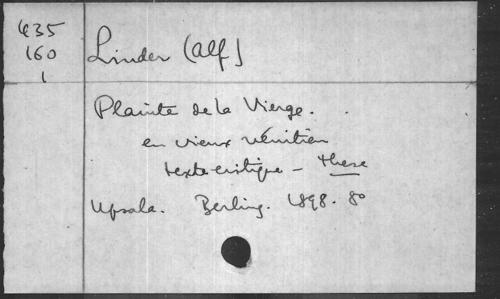 435
160
1
Linder (Alf)
Plainte de la Vierge.
en vieux vénitien
texte critique - these
Upsala. Berling. 1898. 8o